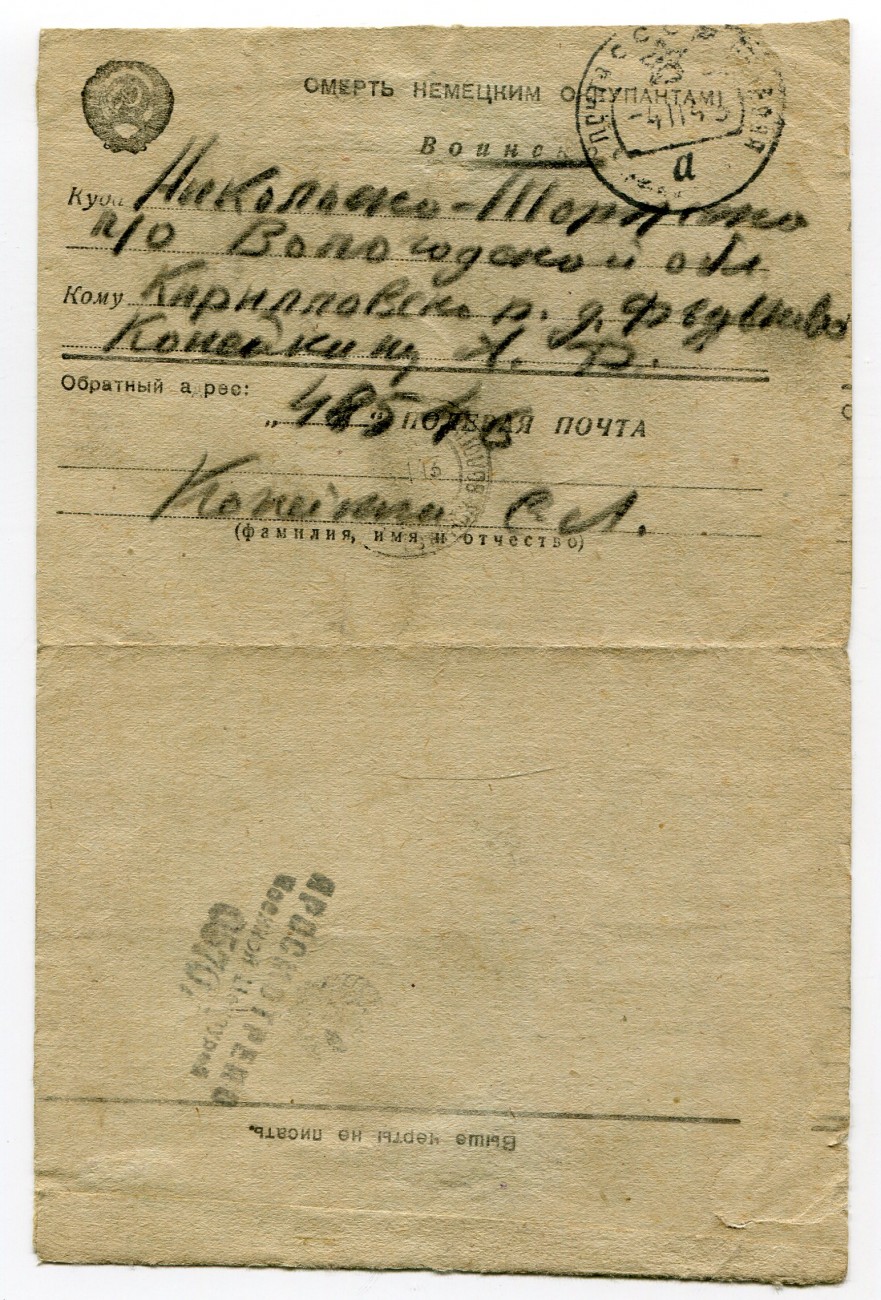 СМЕРТЬ НЕМЕЦКИМ ОККУПАНТАМ!
Воинск
Куда Никольско-Торжско
п/о Вологодской обл
Кому Кирилловск р. д.
Конейкину Л. Ф.
Обратный адрес:
„48516“ ПОЛЕВАЯ ПОЧТА
Конейкин С Л.
(фамилия, имя и отчество)
СССР
а
ПРОСМОТРЕНО
Военной Цензурой
Выше черты не писать.